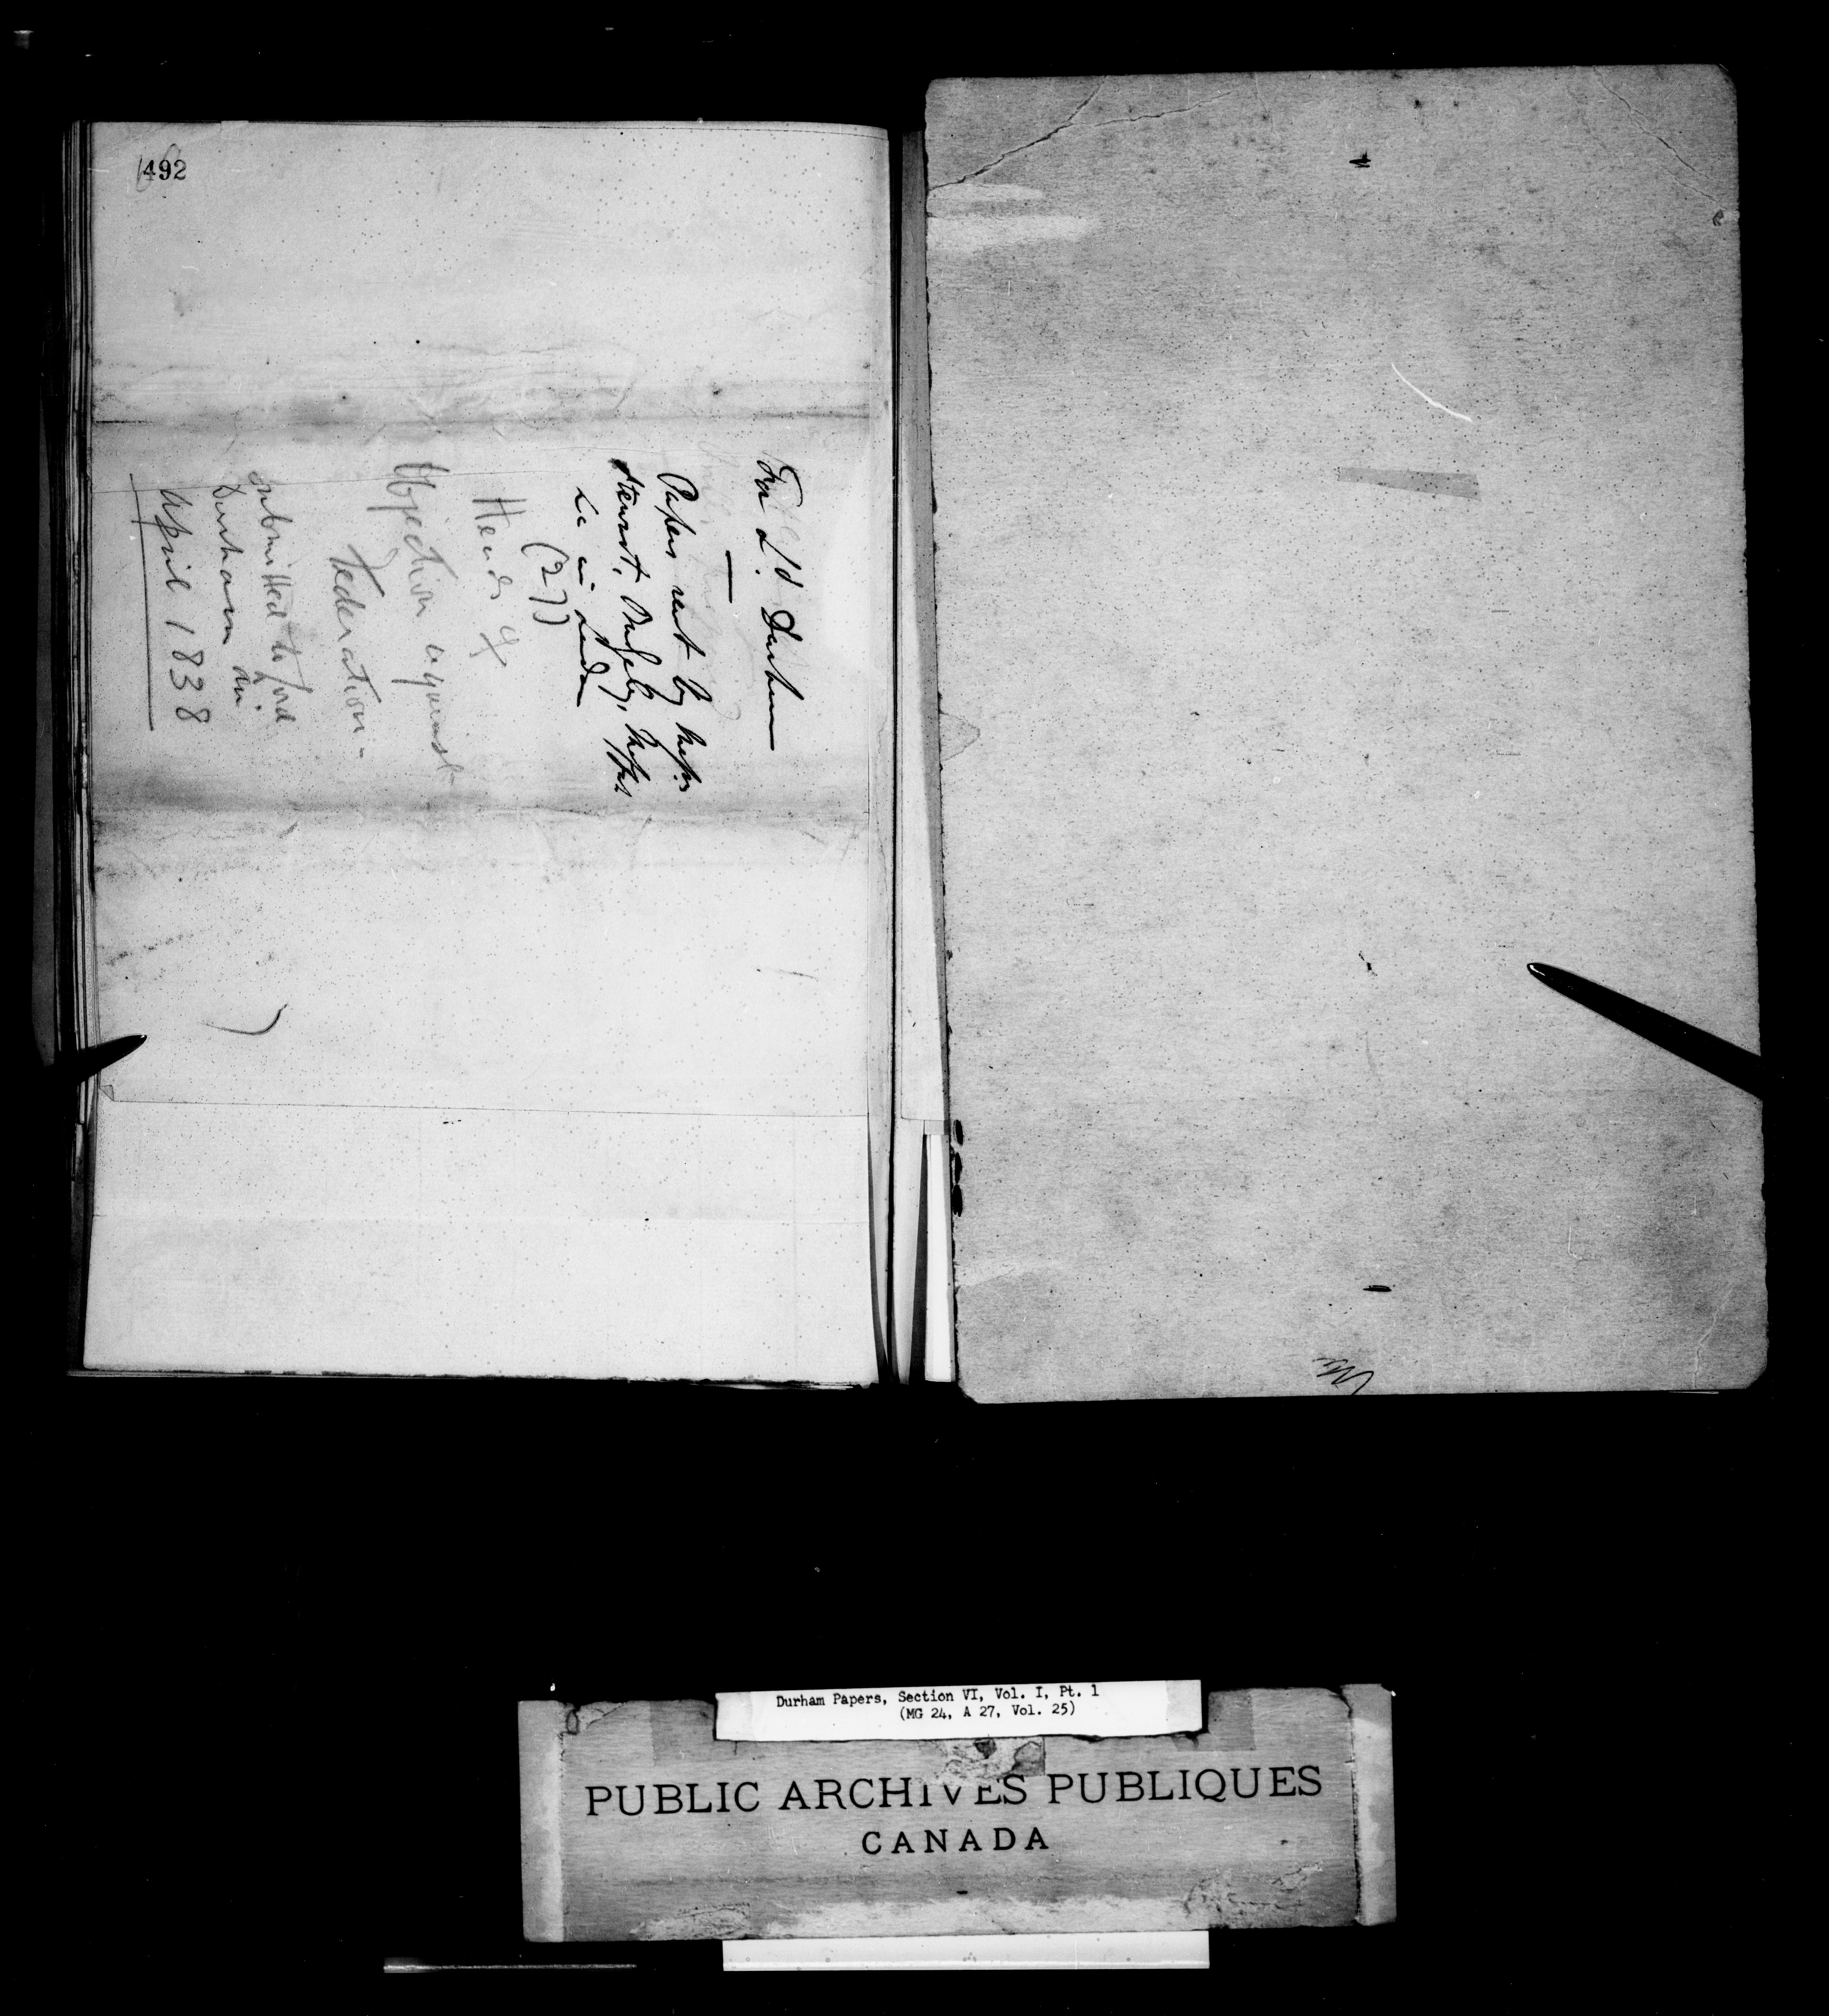 492
For Ld. Durham
Papers sent by Messrs
Stewart, Badgely, Moffat
&c in London
(27)
Heads of
Objection against
Federation -
submitted to Lord
Durham in
April 1838
Durham Papers, Section VI, Vol. I, Pt. 1
(MG 24, A 27, Vol. 25)
PUBLIC ARCHIVES PUBLIQUES
CANADA